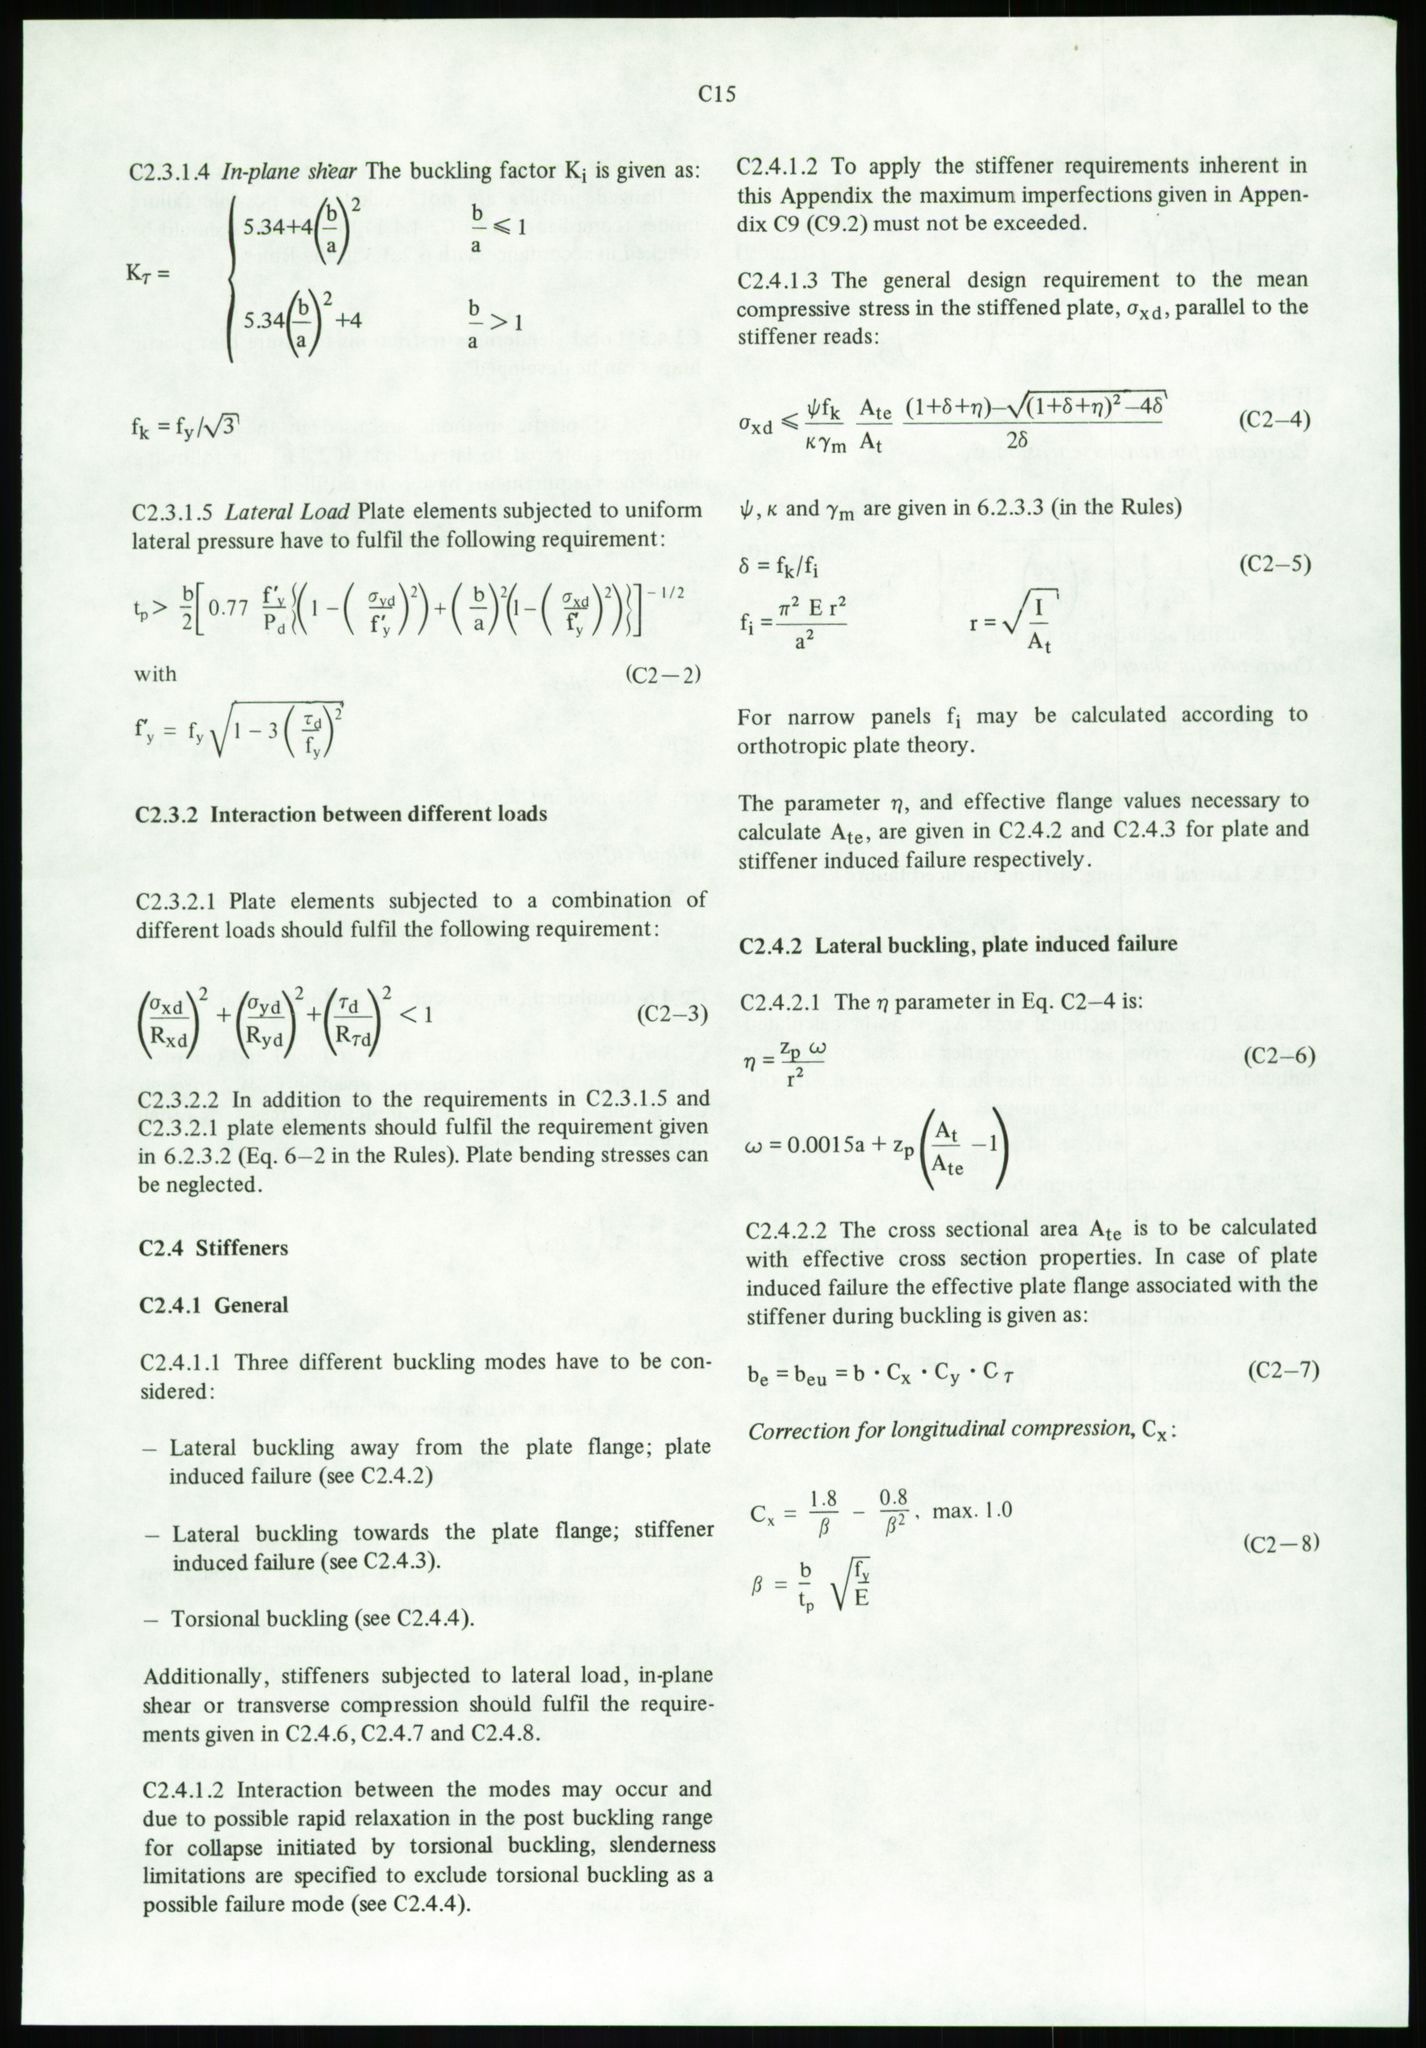 C15
C2.3.1.4 In-plane shear The buckling factor Ki is given as:
Kτ = { 5.34+4(b/a)² b/a ⩽ 1
5.34(b/a)²+4 b/a > 1
fk = fy/√3
C2.3.1.5 Lateral Load Plate elements subjected to uniform
lateral pressure have to fulfil the following requirement:
tp > b/2 [0.77 f′y/Pd {(1 – (σyd/f′y)²) + (b/a)² (1 – (σxd/f′y)²)}]^–1/2
with (C2–2)
f′y = fy √(1 – 3 (τd/fy)²)
C2.3.2 Interaction between different loads
C2.3.2.1 Plate elements subjected to a combination of
different loads should fulfil the following requirement:
(σxd/Rxd)² + (σyd/Ryd)² + (τd/Rτd)² < 1 (C2–3)
C2.3.2.2 In addition to the requirements in C2.3.1.5 and
C2.3.2.1 plate elements should fulfil the requirement given
in 6.2.3.2 (Eq. 6–2 in the Rules). Plate bending stresses can
be neglected.
C2.4 Stiffeners
C2.4.1 General
C2.4.1.1 Three different buckling modes have to be con-
sidered:
– Lateral buckling away from the plate flange; plate
induced failure (see C2.4.2)
– Lateral buckling towards the plate flange; stiffener
induced failure (see C2.4.3).
– Torsional buckling (see C2.4.4).
Additionally, stiffeners subjected to lateral load, in-plane
shear or transverse compression should fulfil the require-
ments given in C2.4.6, C2.4.7 and C2.4.8.
C2.4.1.2 Interaction between the modes may occur and
due to possible rapid relaxation in the post buckling range
for collapse initiated by torsional buckling, slenderness
limitations are specified to exclude torsional buckling as a
possible failure mode (see C2.4.4).
C2.4.1.2 To apply the stiffener requirements inherent in
this Appendix the maximum imperfections given in Appen-
dix C9 (C9.2) must not be exceeded.
C2.4.1.3 The general design requirement to the mean
compressive stress in the stiffened plate, σxd, parallel to the
stiffener reads:
σxd ⩽ ψfk/κγm Ate/At ((1+δ+η)–√((1+δ+η)²–4δ))/2δ (C2–4)
ψ, κ and γm are given in 6.2.3.3 (in the Rules)
δ = fk/fi (C2–5)
fi = π² E r²/a² r = √(I/At)
For narrow panels fi may be calculated according to
orthotropic plate theory.
The parameter η, and effective flange values necessary to
calculate Ate, are given in C2.4.2 and C2.4.3 for plate and
stiffener induced failure respectively.
C2.4.2 Lateral buckling, plate induced failure
C2.4.2.1 The η parameter in Eq. C2–4 is:
η = zp ω/r² (C2–6)
ω = 0.0015a + zp (At/Ate –1)
C2.4.2.2 The cross sectional area Ate is to be calculated
with effective cross section properties. In case of plate
induced failure the effective plate flange associated with the
stiffener during buckling is given as:
be = beu = b · Cx · Cy · Cτ (C2–7)
Correction for longitudinal compression, Cx:
Cx = 1.8/β – 0.8/β², max. 1.0
(C2–8)
β = b/tp √(fy/E)